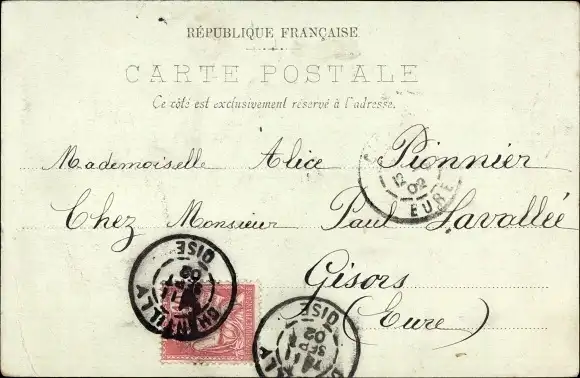 RÉPUBLIQUE FRANÇAISE
CARTE POSTALE
Ce côté est exclusivement réservé à l'adresse.
Mademoiselle Alice Pionnier
Chez Monsieur Paul Lavallée
Gisors
(Eure)
12
02
EURE
CHANTILLY
OISE
02
OISE
SEPT
02
LLY